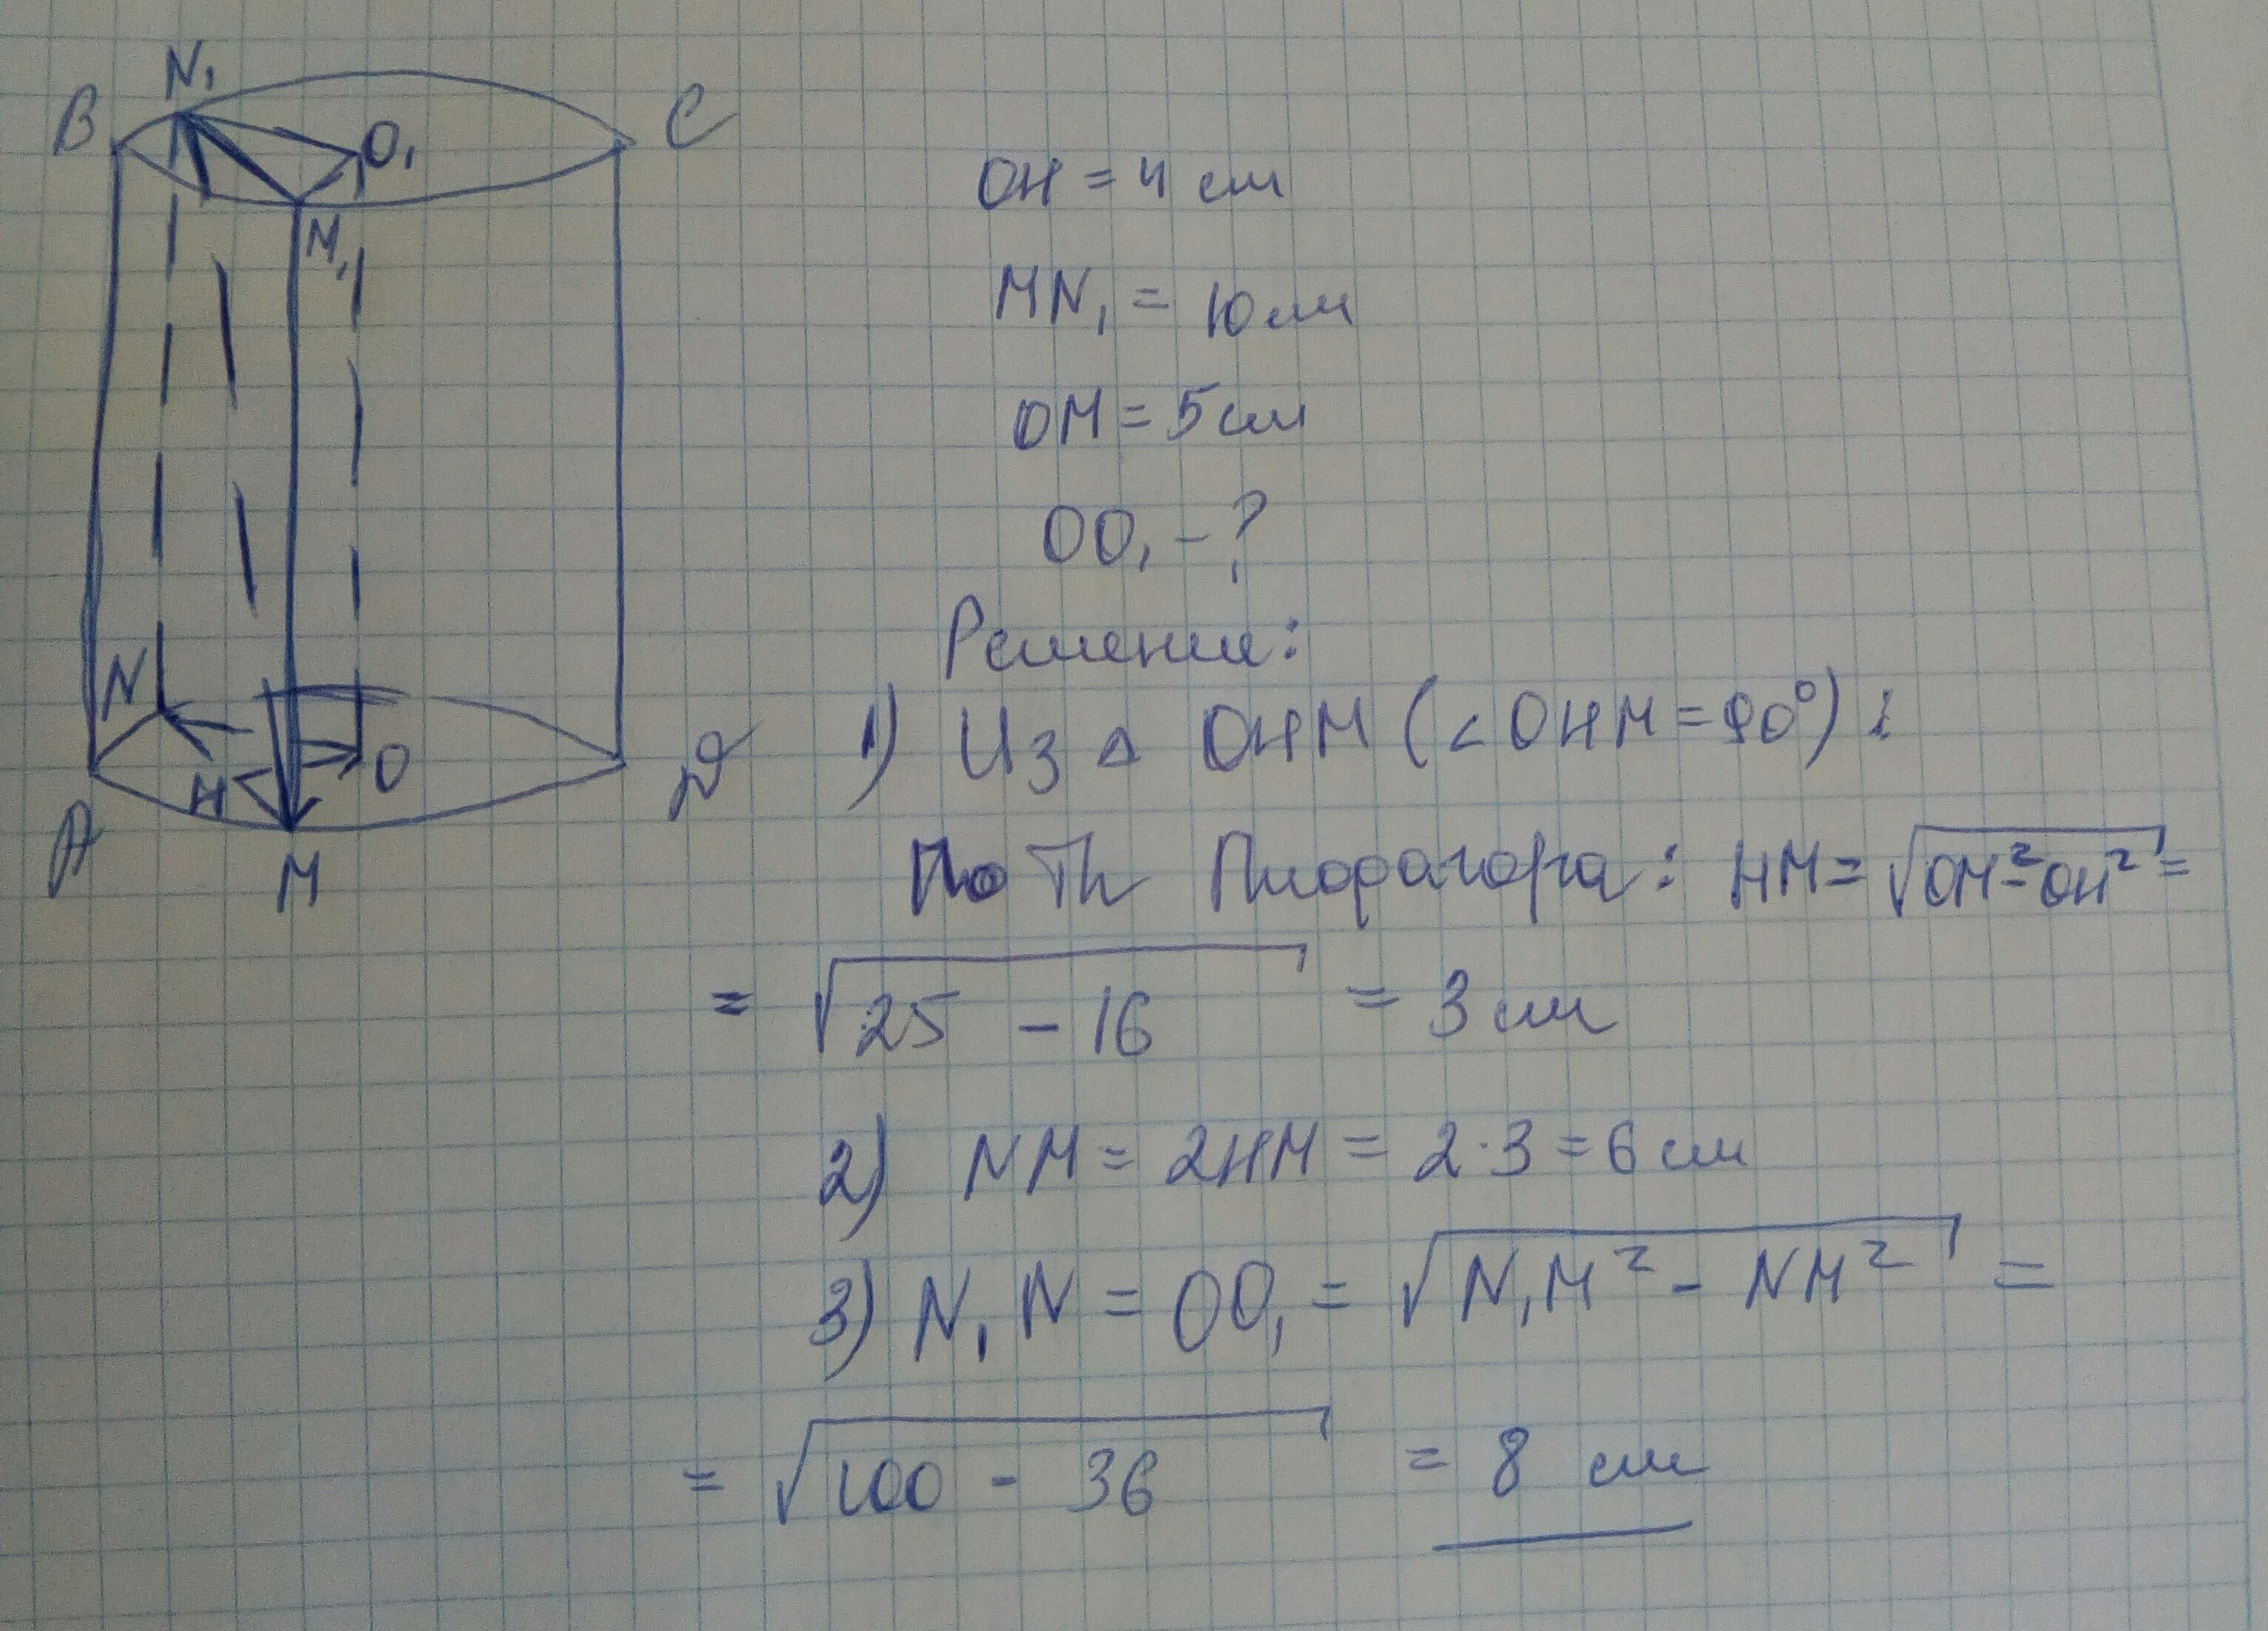 N₁
B
O₁
C
M₁
N
H
O
D
A
M
OH = 4 см
MN₁ = 10 см
OM = 5 см
OO₁ - ?
Решение:
1) Из △ OHM (∠OHM = 90°):
По Th Пифагора: HM = √OM² - OH² =
= √25 - 16 = 3 см
2) NM = 2HM = 2·3 = 6 см
3) N₁N = OO₁ = √N₁M² - NM² =
= √100 - 36 = 8 см